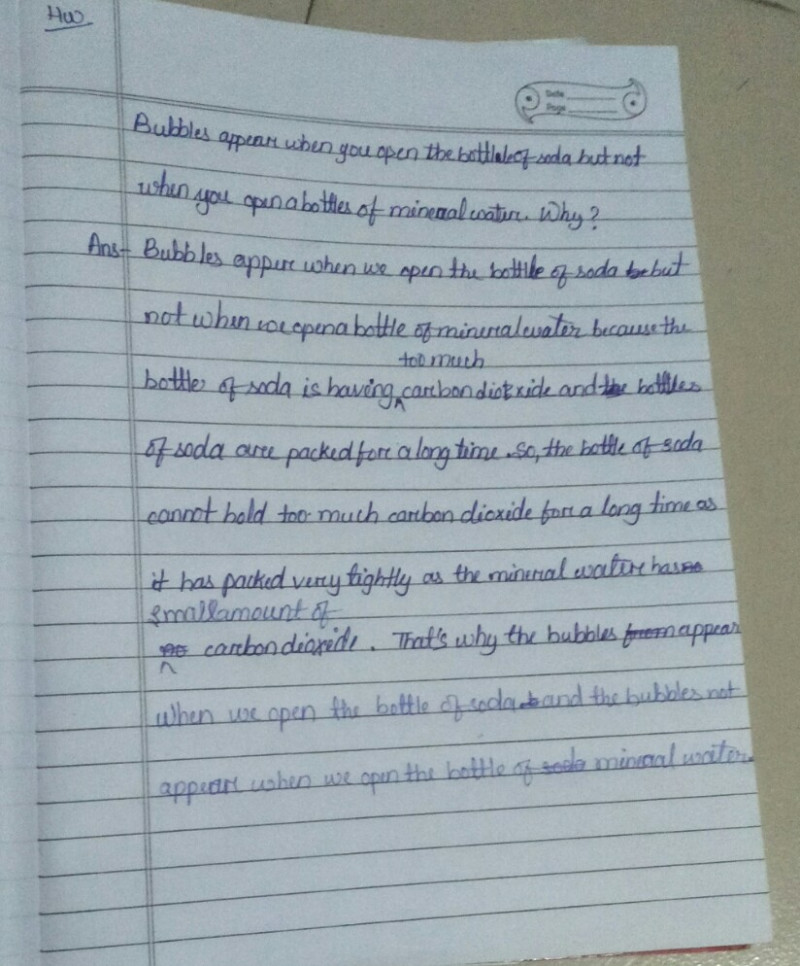 Hw
Date
Page
Bubbles appear when you open the bottle of soda but not
when you open a bottles of mineral water. Why?
Ans- Bubbles appere when we open the bottle of soda but
not when we open a bottle of mineral water because the
too much
bottle of soda is having carbon dioxide and the bottles
of soda are packed for a long time. So, the bottle of soda
cannot hold too much carbon dioxide for a long time as
it has packed very tightly as the mineral water has
small amount of
carbon dioxide. That's why the bubbles from appear
when we open the bottle of soda and the bubbles not
appear when we open the bottle of soda mineral water.